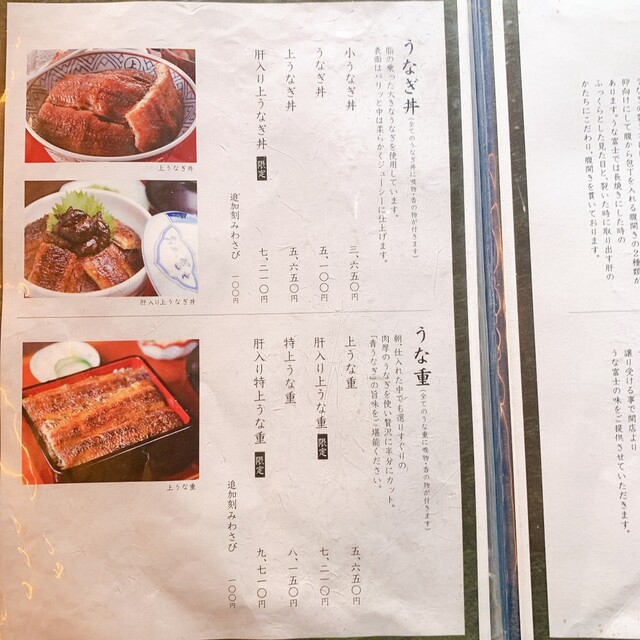 卵向けにして腹から包丁を入れる腹開きの2種類が
あります。うな富士では長焼きにした時の
ふっくらとした見た目と、製いた時に取り出す肝の
かたちにこだわり、腹開きを貫いております。
譲り受ける事で開店より
うな富士の味をご提供させていただきます。
うなぎ丼(全てのうなぎ丼に吸物・香の物が付きます)
脂の乗った大きなうなぎを使用しています。
表面はパリッと中は柔らかくジューシーに仕上げます。
小うなぎ丼 三、六五〇円
うなぎ丼 五、一〇〇円
上うなぎ丼 五、六五〇円
肝入り上うなぎ丼 限定 七、二一〇円
追加刻みわさび 一〇〇円
上うなぎ丼
肝入り上うなぎ丼
うな重(全てのうな重に吸物・香の物が付きます)
朝、仕入れた中でも選りすぐりの
肉厚のうなぎを使い贅沢に半分にカット。
「青うなぎ」の旨味をご堪能ください。
上うな重 五、六五〇円
肝入り上うな重 限定 七、二一〇円
特上うな重 八、一五〇円
肝入り特上うな重 限定 九、七一〇円
追加刻みわさび 一〇〇円
上うな重